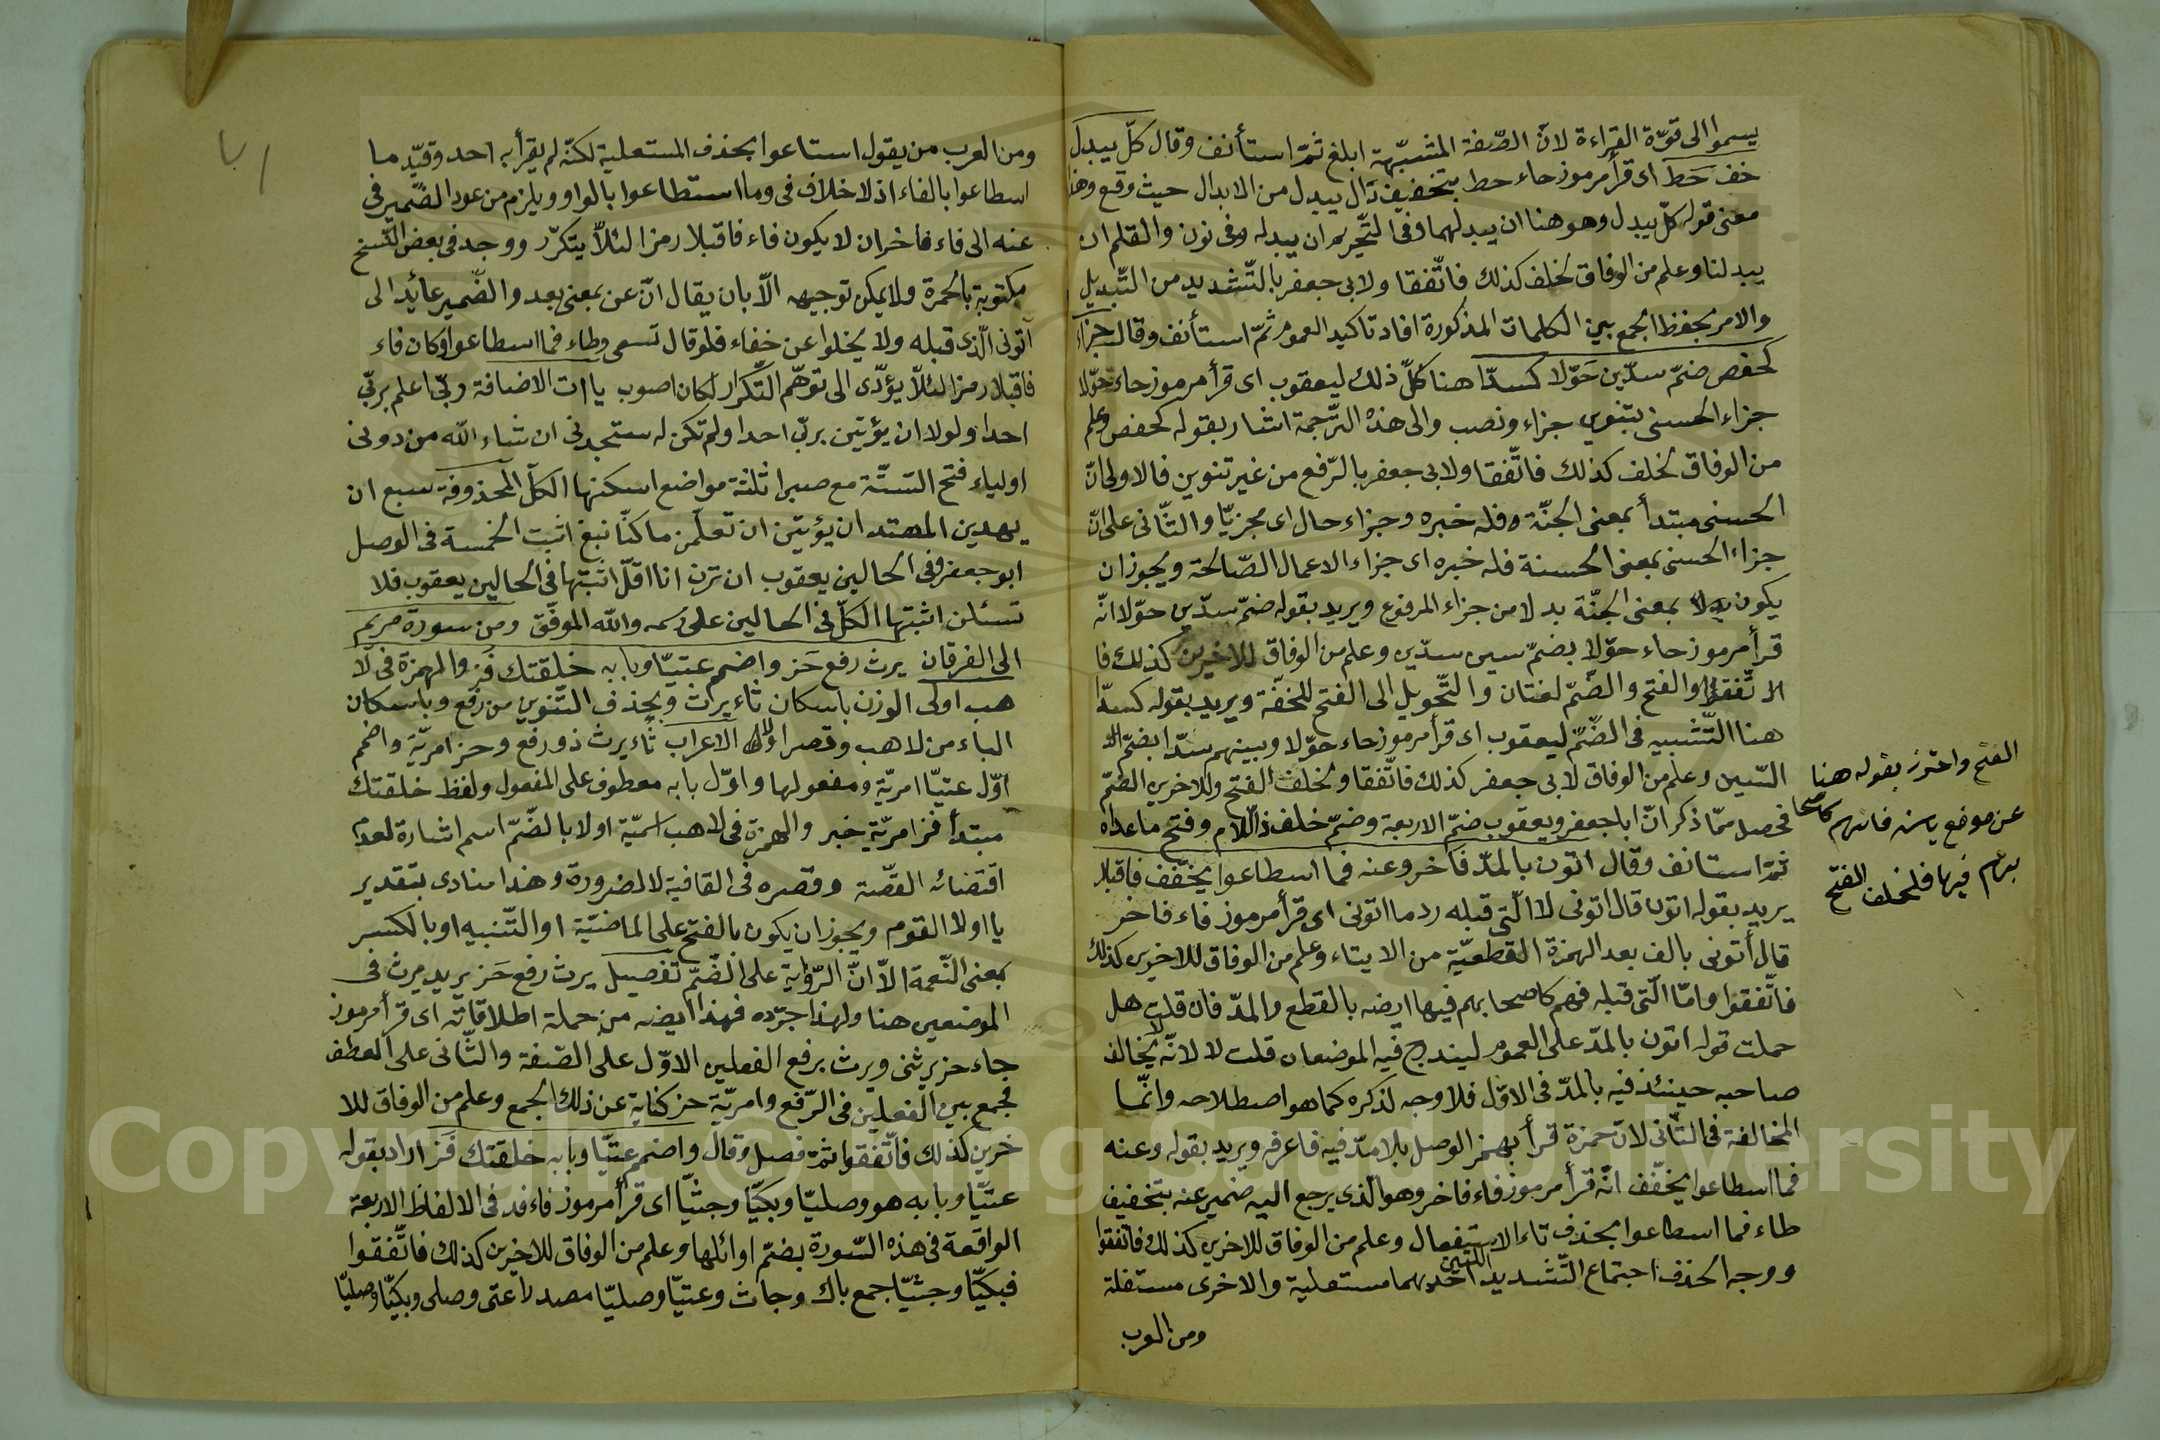 يسموا الى قوّة القراءة لانّ الصّفة المشبّهة ابلغ ثمّ استأنف وقال كلّ يبدل
خف حَط اى قرأ مرموز حاء حط بتخفيف دال يبدل من الابدال حيث وقع وهذا
معنى قوله كلّ يبدل وهو هنا ان يبدلهما وفى التّحريم ان يبدله وفى نون والقلم ان
يبدلنا وعلم من الوفاق لخلف كذلك فاتّفقا ولابى جعفر بالتّشديد من التّبديل
والامر بحفظ الجمع بين الكلمات المذكورة افاد تاكيد العموم ثمّ استأنف وقال جزاء
كحفص ضمّ سدّين حَوّلا كسدّا هنا كلّ ذلك ليعقوب اى قرأ مرموز حاء حوّلا
جزاء الحسنى بتنوين جزاء ونصب والى هذه التّرجمة اشار بقوله كحفص وعلم
من الوفاق لخلف كذلك فاتّفقا ولابى جعفر بالرّفع من غير تنوين فالاولى انّ
الحسنى مبتدأ بمعنى الجنّة وفله خبره وجزاء حال اى مجزيّا والثّانى على انّ
جزاء الحسنى بمعنى الحسنة فله خبره اى جزاء الاعمال الصّالحة ويجوز ان
يكون بدلا بمعنى الجنّة بدلا من جزاء المرفوع ويريد بقوله ضمّ سدّين حوّلا انّه
قرأ مرموز حاء حوّلا بضمّ سين سدّين وعلم من الوفاق للاخيرين كذلك فا
لا تّفقا والفتح والضّمّ لغتان والتّحويل الى الفتح للخفّة ويريد بقوله كسدّا
هنا التّشبيه فى الضّمّ ليعقوب اى قرأ مرموز حاء حوّلا وبينهم سدّا بضمّ
السّين وعلم من الوفاق لابى جعفر كذلك فاتّفقا ولخلف الفتح وللاخرين الضّمّ
فحصل ممّا ذكر انّ ابا جعفر ويعقوب ضمّ الاربعة وضمّ خلف ذا اللّام وفتح ماعداه
ثمّ استانف وقال اتون بالمدّ فاخر وعنه فما اسطاعوا يخفّف فاقبلا
يريد بقوله اتون قال اتونى لا الّتى قبله ردما اتونى اى قرأ مرموز فاء فاخر
قال أتونى بالف بعد الهمزة القطعيّة من الايتاء وعلم من الوفاق للاخرين كذلك
فاتّفقوا وامّا الّتى قبله فهم كاصحابهم فيها ايضه بالقطع والمدّ فان قلت هل
حملت قوله اتون بالمدّ على العموم ليندرج فيه الموضعان قلت لا لانّه لا يخالف
صاحبه حينئذ فيه بالمدّ فى الاوّل فلا وجه لذكره كما هو اصطلاحه وانّما
المخالفة فى الثّانى لانّ حمزة قرأ بهمز الوصل بلا مدّ فيه فاعرفه ويريد بقوله وعنه
فما اسطاعوا يخفّف انّه قرأ مرموز فاء فاخر وهو الّذى يرجع اليه ضمير عنه بتخفيف
طاء فما اسطاعوا بحذف تاء الاستفعال وعلم من الوفاق للاخرين كذلك فاتّفقوا
ووجه الحذف اجتماع التّشديد احديهما مستعلية والاخرى مستفلة
ومن العرب
الفتح واحترز بقوله هنا
عن موضع ياسن فانّهم كاصحا
بهم فيها فلخلف الفتح
ومن العرب من يقول استاعوا بحذف المستعلية لكنّه لم يقرأ به احد وقيّد ما
اسطاعوا بالفاء اذ لا خلاف فى وما استطاعوا بالواو ويلزم من عود الضّمير فى
عنه الى فاء فاخر ان لا يكون فاء فاقبلا رمزا لئلّا يتكرّر ووجد فى بعض النّسخ
مكتوبة بالحمرة ولا يمكن توجيهه الّا بان يقال انّ عن بمعنى بعد والضّمير عائد الى
آتونى الّذى قبله ولا يخلوا عن خفاء فلو قال تسمى وطاء فما اسطاعوا وكان فاء
فاقبلا رمزا لئلّا يؤدّى الى توهّم التّكرار لكان اصوب ياات الاضافة ربّى اعلم بربّى
احدا ولولا ان يؤتين بربّى احدا ولم تكن له ستجدنى ان شاء اللّه من دونى
اولياء فتح السّتّة مع صبرا ثلثة مواضع اسكنها الكلّ المحذوفة سبع ان
يهدين المهتد ان يؤتين ان تعلّمن ما كنّا نبغ اثبت الخمسة فى الوصل
ابو جعفر وفى الحالين يعقوب ان ترن انا اقلّ اثبتها فى الحالين يعقوب فلا
تسئلن اثبتها الكلّ فى الحالين على رسمه واللّه الموفّق ومن سورة مريم
الى الفرقان يرث رفع حَز واضمم عتيّا وبابه خلقتك فَز والهمزة فى لا
هب اولى الوزن باسكان ثاء يرث وبحذف التّنوين من رفع وباسكان
الباء من لاهب وقصر اولا الاعراب ثاء يرث ذو رفع وحز امريّة واضمم
اوّل عتيّا امريّة ومفعولها واوّل بابه معطوف على المفعول ولفظ خلقتك
مبتدأ فز امريّة خبر والهمزة فى لاهب اسميّة اولا بالضّمّ اسم اشارة لعدم
اقتضائه القصّة وقصره فى القافية لا لضرورة وهذا منادى بتقدير
يا اولاء القوم ويجوز ان يكون بالفتح على الماضيّة او التّنبيه او بالكسر
بمعنى النّعمة الّا انّ الرّواية على الضّمّ تفصيل يرث رفع حَز يريد يرث فى
الموضعين هنا ولهذا جرّده فهذا ايضه من جملة اطلاقاته اى قرأ مرموز
حاء حز يرثنى ويرث برفع الفعلين الاوّل على الصّفة والثّانى على العطف
فجمع بين الفعلين فى الرّفع وامريّة حز كناية عن ذلك الجمع وعلم من الوفاق للا
خرين كذلك فاتّفقوا ثمّ فصل وقال واضمم عتيّا وبابه خلقتك فَز اراد بقوله
عتيّا وبابه هو وصليّا وبكيّا وجثيّا اى قرأ مرموز فاء فد فى الالفاظ الاربعة
الواقعة فى هذه السّورة بضمّ اوائلها وعلم من الوفاق للاخرين كذلك فاتّفقوا
فبكيّا وجثيّا جمع باك وجاث وعتيّا وصليّا مصدرا عتى وصلى وبكيّا وصليّا